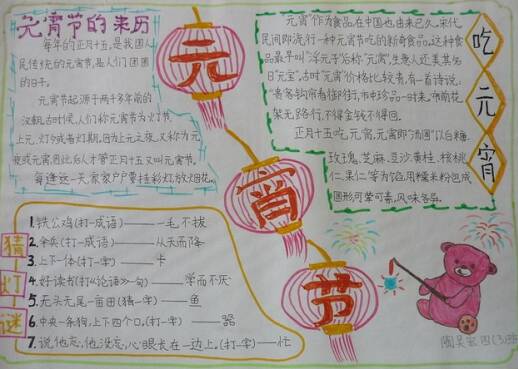 元宵节的来历
每年的正月十五,是我国人
民传统的元宵节,是人们团圆
的日子。
元宵节起源于两千多年前的
汉朝,古时候,人们称元宵节为灯节,
上元,灯夕或者灯期,因为上元之夜,又称为元
夜或元宵,因此后人才管正月十五又叫元宵节。
每逢这一天,家家户户要挂彩灯,放烟花。
元
宵
节
"元宵"作为食品,在中国也由来已久,宋代,
民间即流行一种元宵节吃的新奇食品,这种食
品,最早叫"浮元子"后称"元宵",生意人还美其名
曰"元宝"。古时"元宵"价格比较贵,有一首诗说,
"贵客钩帘看御街,市中珍品一时来,帘前花
架无路行,不得金钱不得回。
正月十五吃元宵,元宵即"汤圆"以白糖、
玫瑰、芝麻、豆沙、黄桂、核桃
仁、果仁、等为馅,用糯米粉包成
圆形,可荤可素,风味各异。
吃
元
宵
猜
灯
谜
1.铁公鸡(打一成语)——一毛不拔
2.伞兵(打一成语)——从天而降
3.上下一体(打一字)——卡
4.好读书(打《论语》一句)——学而不厌
5.无头无尾一亩田(猜一字)——鱼
6.中央一条狗,上下四个口,(打一字)——器
7.说他忘,他没忘,心眼长在一边上。(打一字)——忙
四(3)班